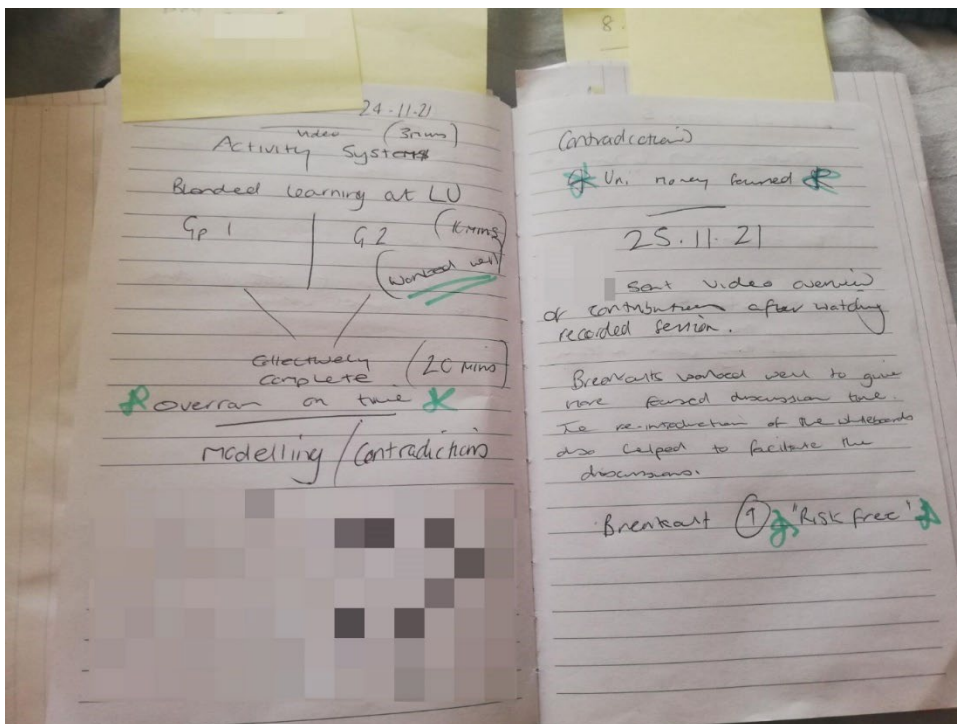 24-11-21
video (3mins)
Activity Systems
Blended learning at LU
Gp 1
G 2
(Worked well)
Collectively (20 mins)
complete
overran on time
Modelling / Contradictions
8.
Contradictions
Uni money focused
25.11.21
Sent video overview
of contributions after watching
recorded session.
Breakouts worked well to give
more focused discussion time.
The re-introduction of the whiteboards
also helped to facilitate the
discussions.
Breakout 1 'Risk free'